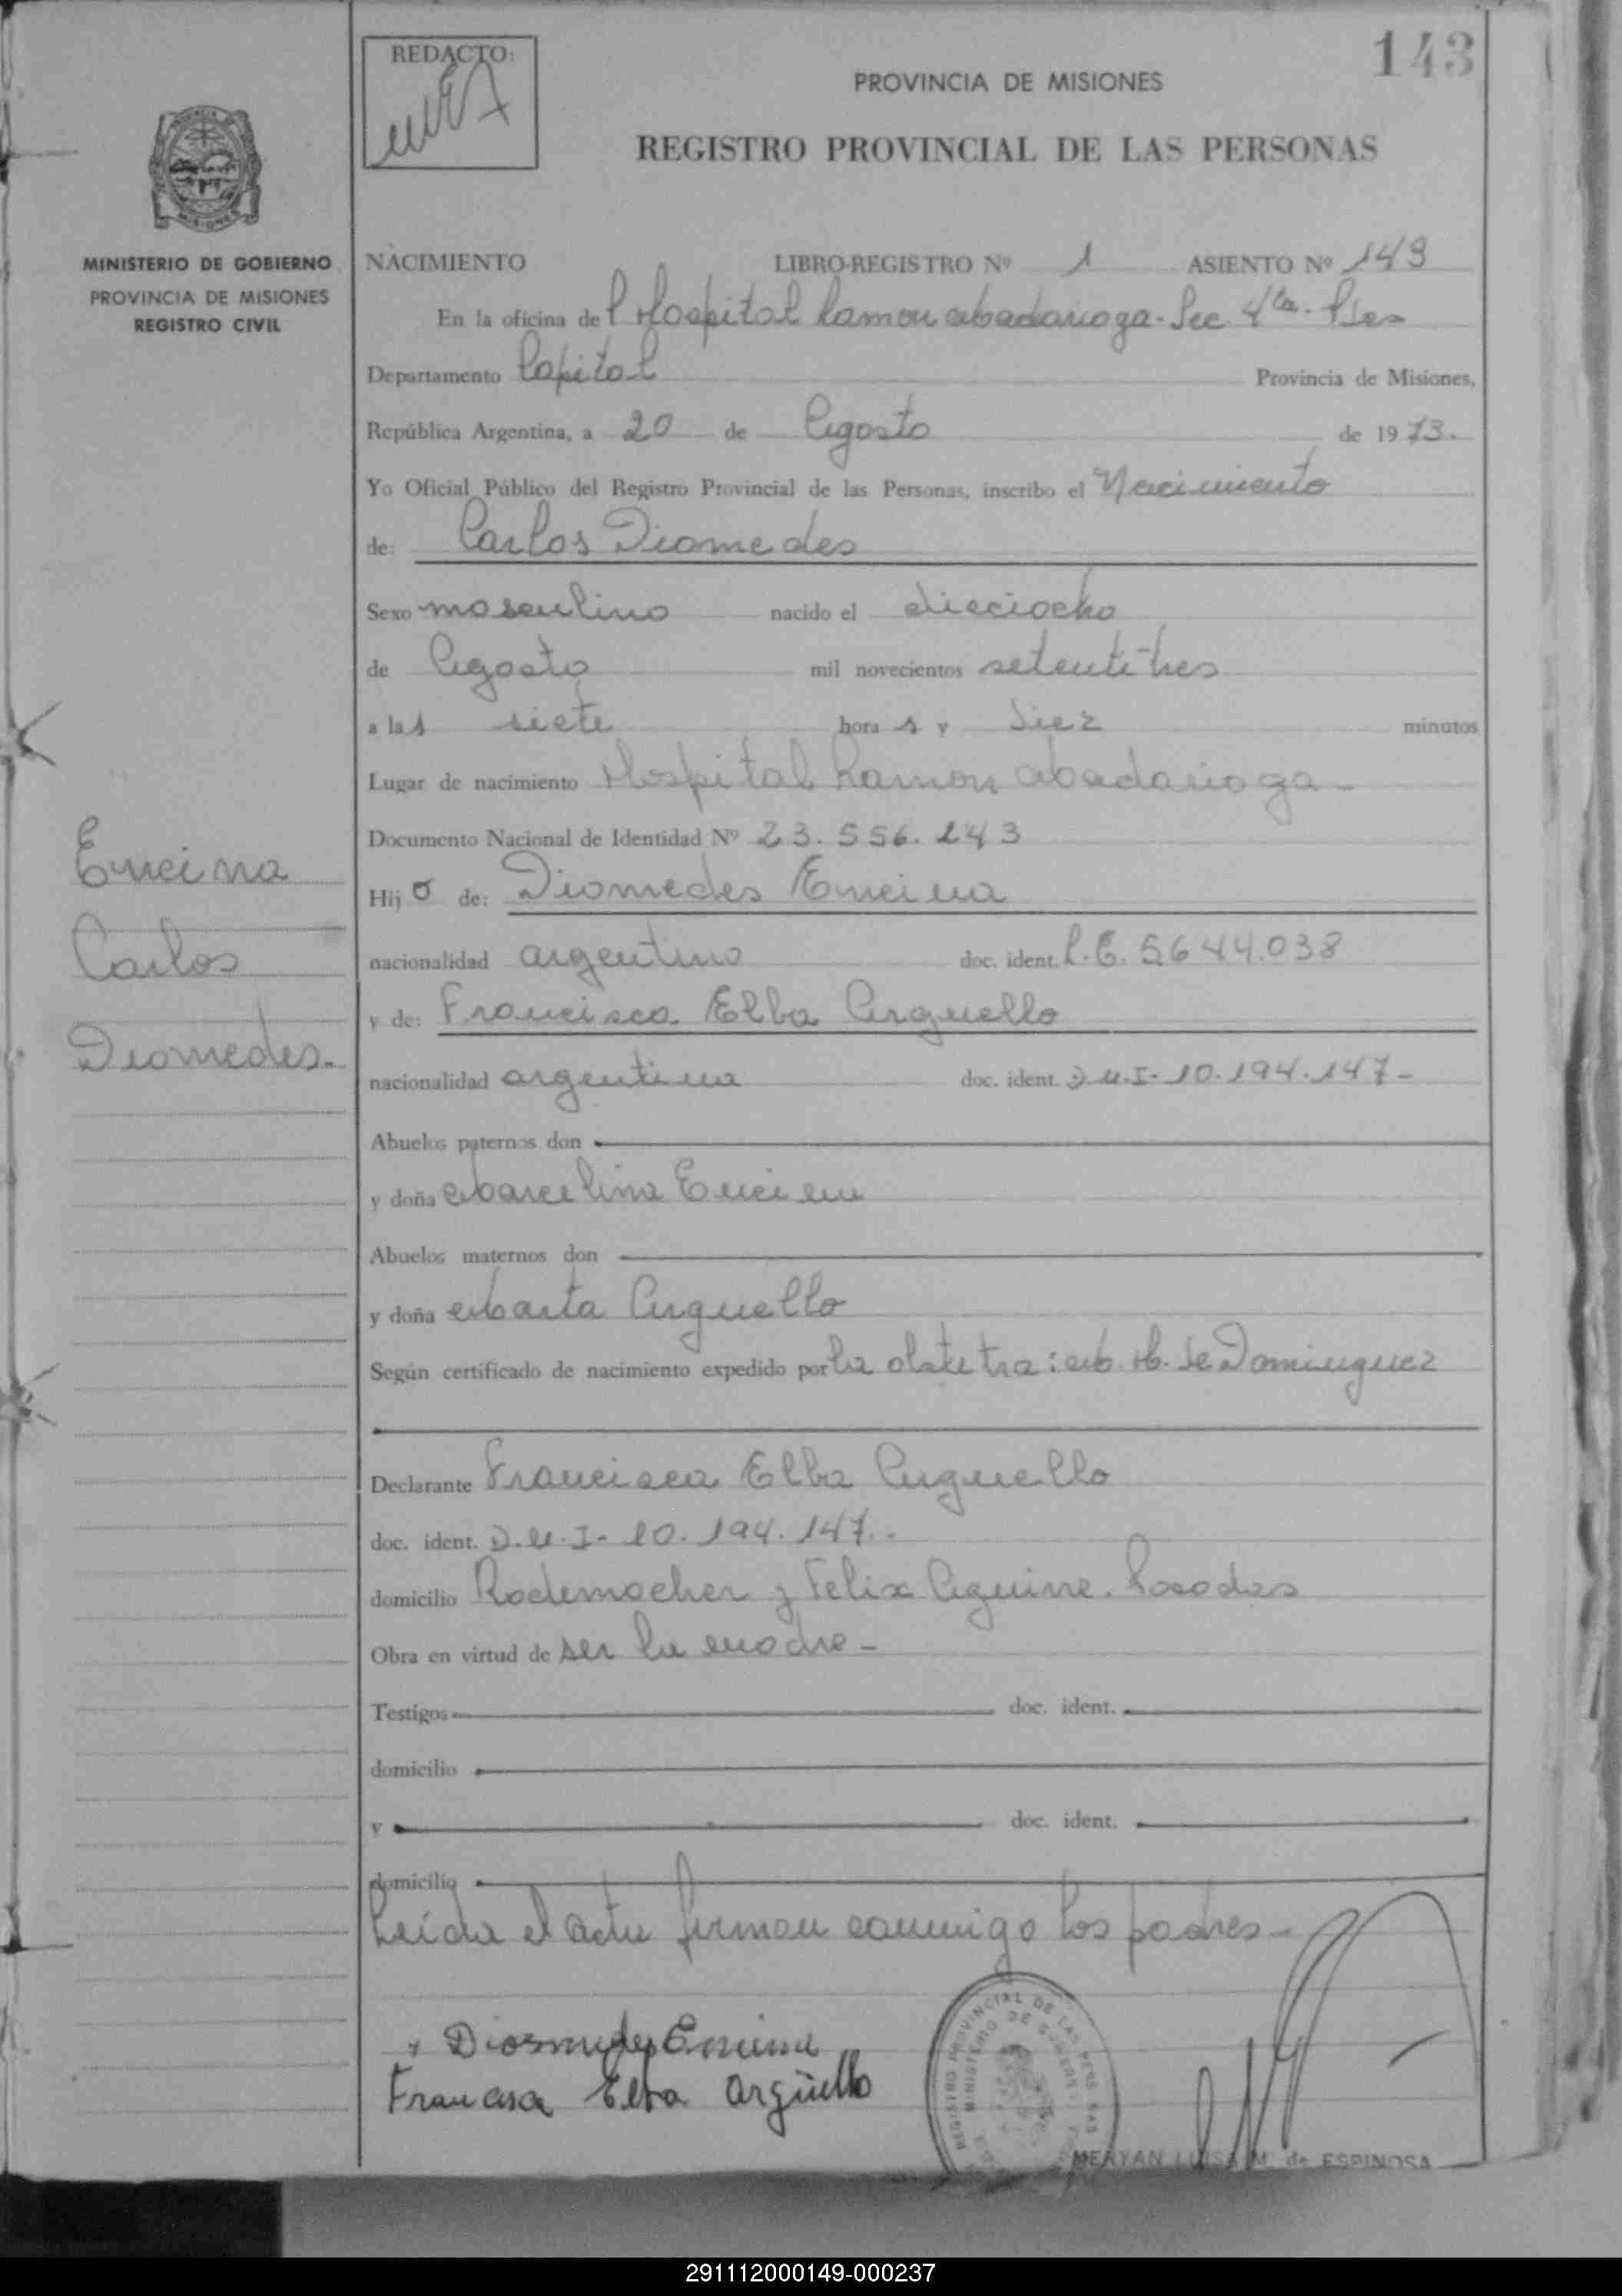 143
REDACTO:
PROVINCIA DE MISIONES
REGISTRO PROVINCIAL DE LAS PERSONAS
MISIONES
MINISTERIO DE GOBIERNO
PROVINCIA DE MISIONES
REGISTRO CIVIL
NACIMIENTO LIBRO-REGISTRO Nº 1 ASIENTO Nº 143
En la oficina del Hospital Ramon Madariaga - Sec. 4ta. Pdas
Departamento Capital Provincia de Misiones,
República Argentina, a 20 de Agosto de 1973.
Yo Oficial Público del Registro Provincial de las Personas, inscribo el Nacimiento
de: Carlos Diomedes
Sexo masculino nacido el dieciocho
de Agosto mil novecientos setentitres
a las siete horas y diez minutos
Lugar de nacimiento Hospital Ramon Madariaga -
Documento Nacional de Identidad Nº 23.556.243
Hijo de: Diomedes Encina
nacionalidad argentino doc. ident. L.E. 5644.038
y de: Francisca Elba Arguello
nacionalidad argentina doc. ident. D.U.I- 10.194.147-
Abuelos paternos don
y doña Marcelina Encina
Abuelos maternos don
y doña Marta Arguello
Según certificado de nacimiento expedido por la obstetra: M. H. de Dominguez
Declarante Francisca Elba Arguello
doc. ident. D.U.I- 10.194.147.-
domicilio Rademacher y Felix Aguirre. Posadas
Obra en virtud de ser la madre -
Testigos doc. ident.
domicilio
y doc. ident.
domicilio
Leída el acta firman conmigo los padres -
Encina
Carlos
Diomedes.-
x Diosmedes Encina
Francisca Elba Argüello
REGISTRO PROVINCIAL DE LAS PERSONAS
MINISTERIO DE GOBIERNO
MERYAN LUISA M. de ESPINOSA
291112000149-000237